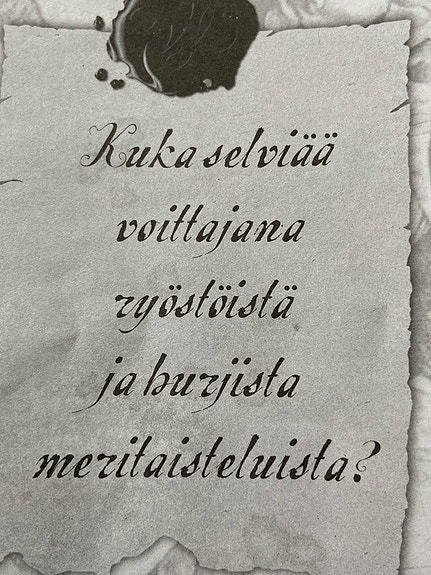 Kuka selviää
voittajana
ryöstöistä
ja hurjista
meritaisteluista?